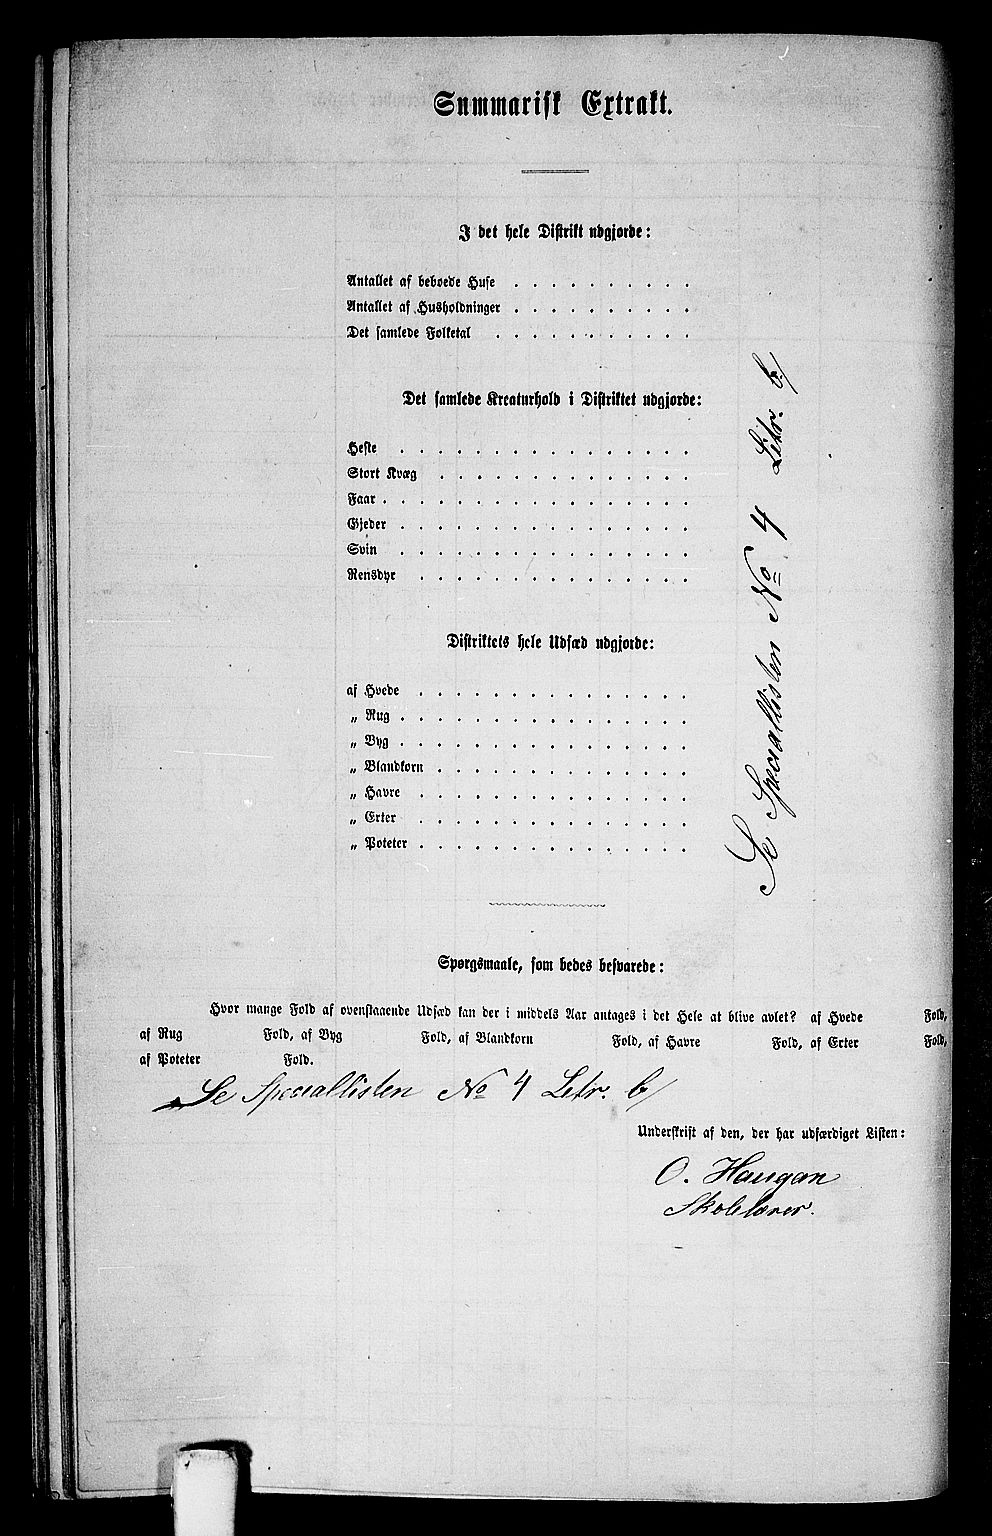 Summarisk Extrakt.
I det hele Distrikt udgjorde:
Antallet af beboede Huse . . . . . . . . . .
Antallet af Husholdninger . . . . . . . . . .
Det samlede Folketal . . . . . . . . . . .
Det samlede Kreaturhold i Distriktet udgjorde:
Heste . . . . . . . . . . . . . . . .
Stort Kvæg . . . . . . . . . . . . . .
Faar . . . . . . . . . . . . . . . . .
Gjeder . . . . . . . . . . . . . . . .
Svin . . . . . . . . . . . . . . . .
Rensdyr . . . . . . . . . . . . . . .
Distriktets hele Udsæd udgjorde:
af Hvede . . . . . . . . . . . . . . .
„ Rug . . . . . . . . . . . . . . . .
„ Byg . . . . . . . . . . . . . . . .
„ Blandkorn . . . . . . . . . . . . . .
„ Havre . . . . . . . . . . . . . . .
„ Erter . . . . . . . . . . . . . . .
„ Poteter . . . . . . . . . . . . . . .
Se Speciallisten No 4 Litr. b/
Spørgsmaale, som bedes besvarede:
Hvor mange Fold af ovenstaaende Udsæd kan der i middels Aar antages i det Hele at blive avlet? af Hvede Fold,
af Rug Fold, af Byg Fold, af Blandkorn Fold, af Havre Fold, af Erter Fold,
af Poteter Fold.
Se Speciallisten No 4 Litr. b/
Underskrift af den, der har udfærdiget Listen:
O. Haugan
Skolelærer.